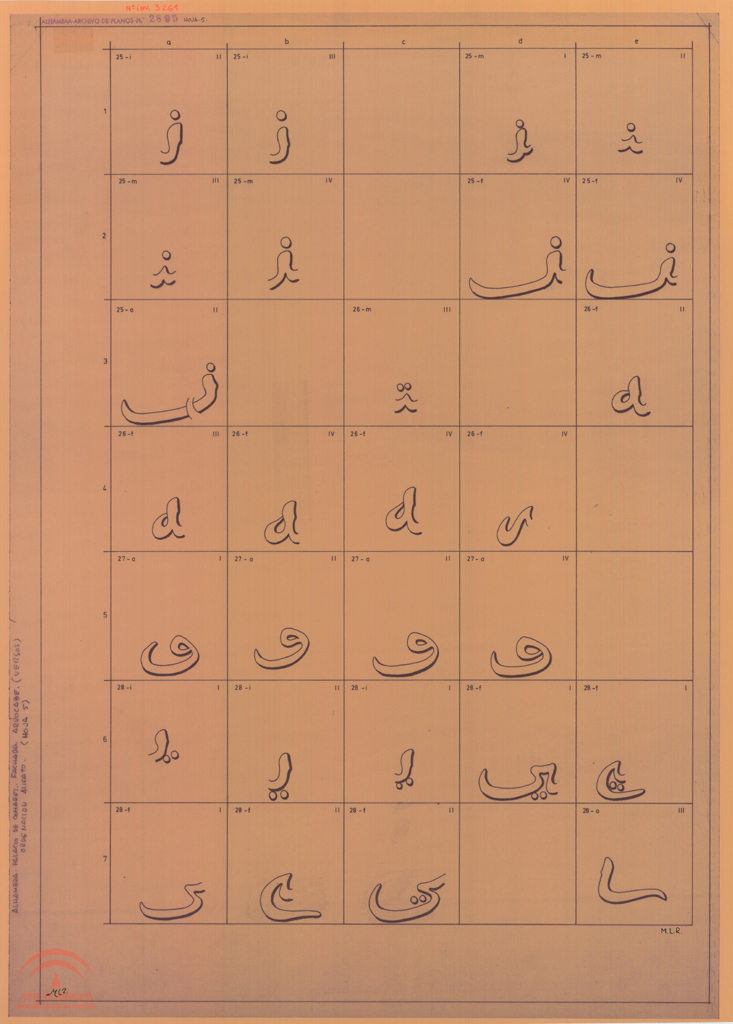 Nº inv. 5261
ALHAMBRA-ARCHIVO DE PLANOS N.º 2805 HOJA-5-
a b c d e
1
25-i II
25-i III
25-m I
25-m II
2
25-m III
25-m IV
25-f IV
25-f IV
3
25-a II
26-m III
26-f II
4
26-f III
26-f IV
26-f IV
26-f IV
5
27-a I
27-a II
27-a II
27-a IV
6
28-i I
28-i II
28-i I
28-f I
28-f I
7
28-f I
28-f II
28-f II
28-a III
M.L.R.
ALHAMBRA. PALACIO DE COMARES. FACHADA ARROCABE. (VERSOS)
(HOJA 5)
MLR